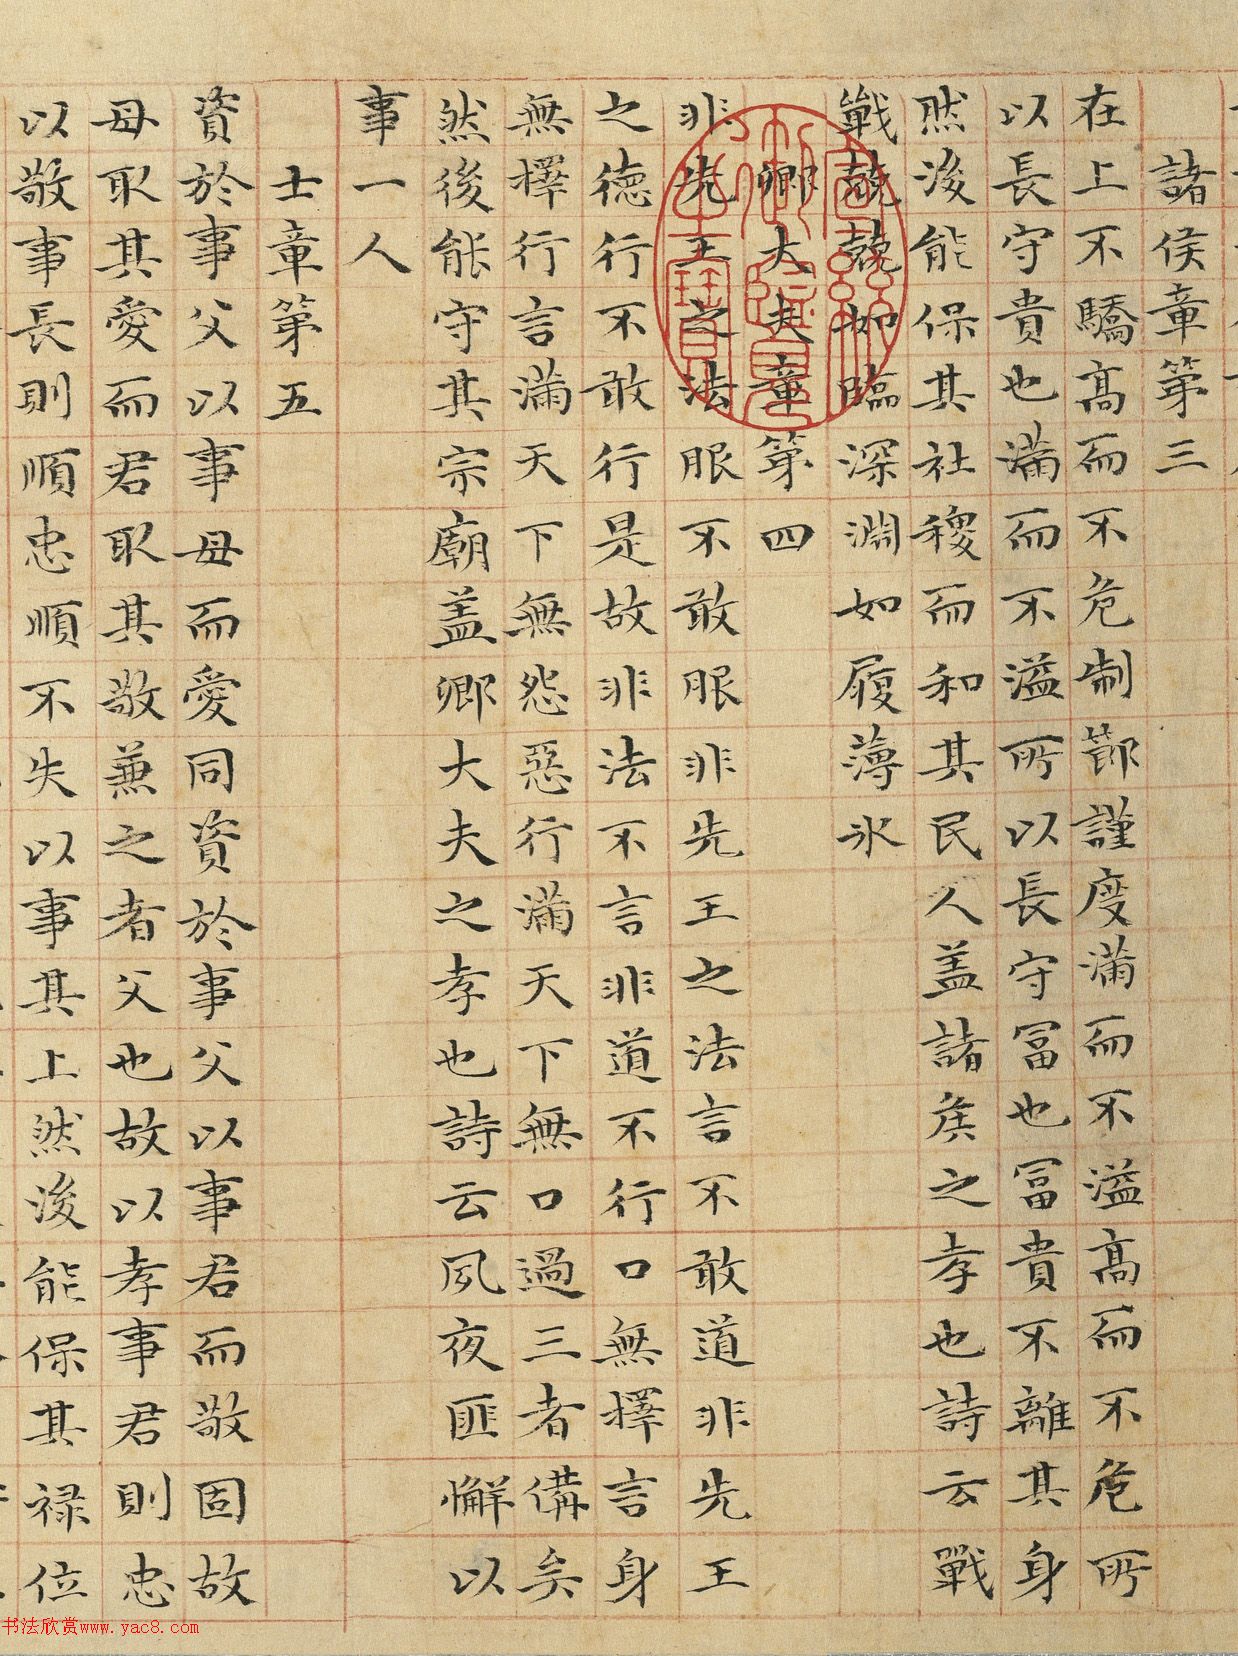 諸侯章第三
在上不驕高而不危制節謹度滿而不溢高而不危所
以長守貴也滿而不溢所以長守冨也冨貴不離其身
然後能保其社稷而和其民人盖諸侯之孝也詩云戰
戰兢兢如臨深淵如履薄冰
卿大夫章第四
非先王之法服不敢服非先王之法言不敢道非先王
之德行不敢行是故非法不言非道不行口無擇言身
無擇行言滿天下無怨惡行滿天下無口過三者備矣
然後能守其宗廟盖卿大夫之孝也詩云夙夜匪懈以
事一人
士章第五
資於事父以事母而愛同資於事父以事君而敬固故
母取其愛而君取其敬兼之者父也故以孝事君則忠
以敬事長則順忠順不失以事其上然後能保其禄位
书法欣赏www.yac8.com